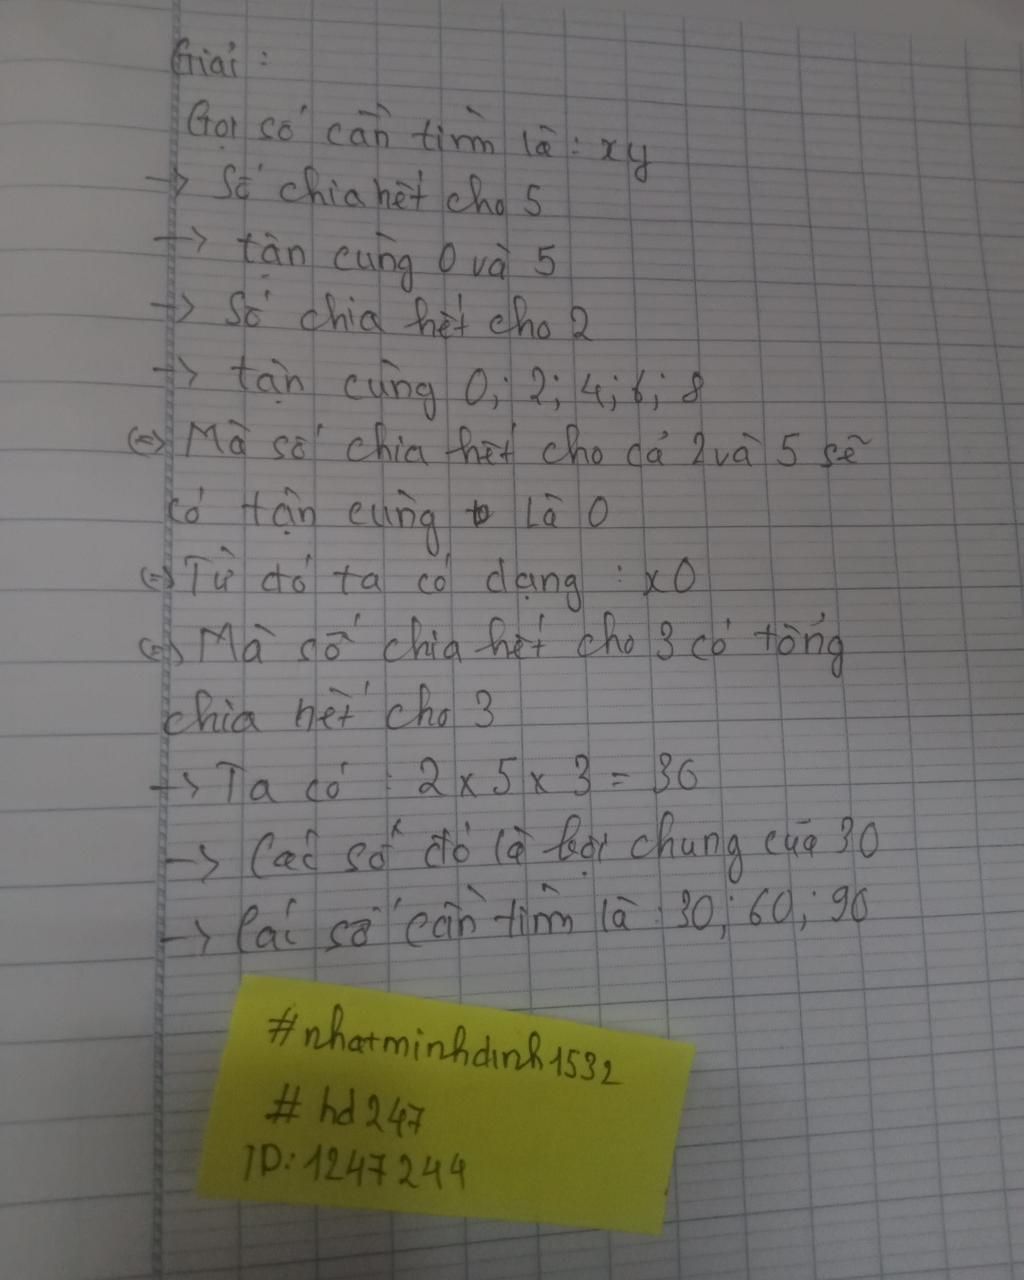 Giải :
Gọi số cần tìm là : xy
-> Số chia hết cho 5
-> tận cùng 0 và 5
-> Số chia hết cho 2
-> tận cùng 0; 2; 4; 6; 8
(=) Mà số chia hết cho cả 2 và 5 sẽ
có tận cùng là 0
(=) Từ đó ta có dạng : x0
(=) Mà số chia hết cho 3 có tổng
chia hết cho 3
-> Ta có : 2 x 5 x 3 = 30
-> Các số đó là bội chung của 30
-> Các số cần tìm là : 30; 60; 90
#nhatminhdinh1532
# hd247
ID: 1247244